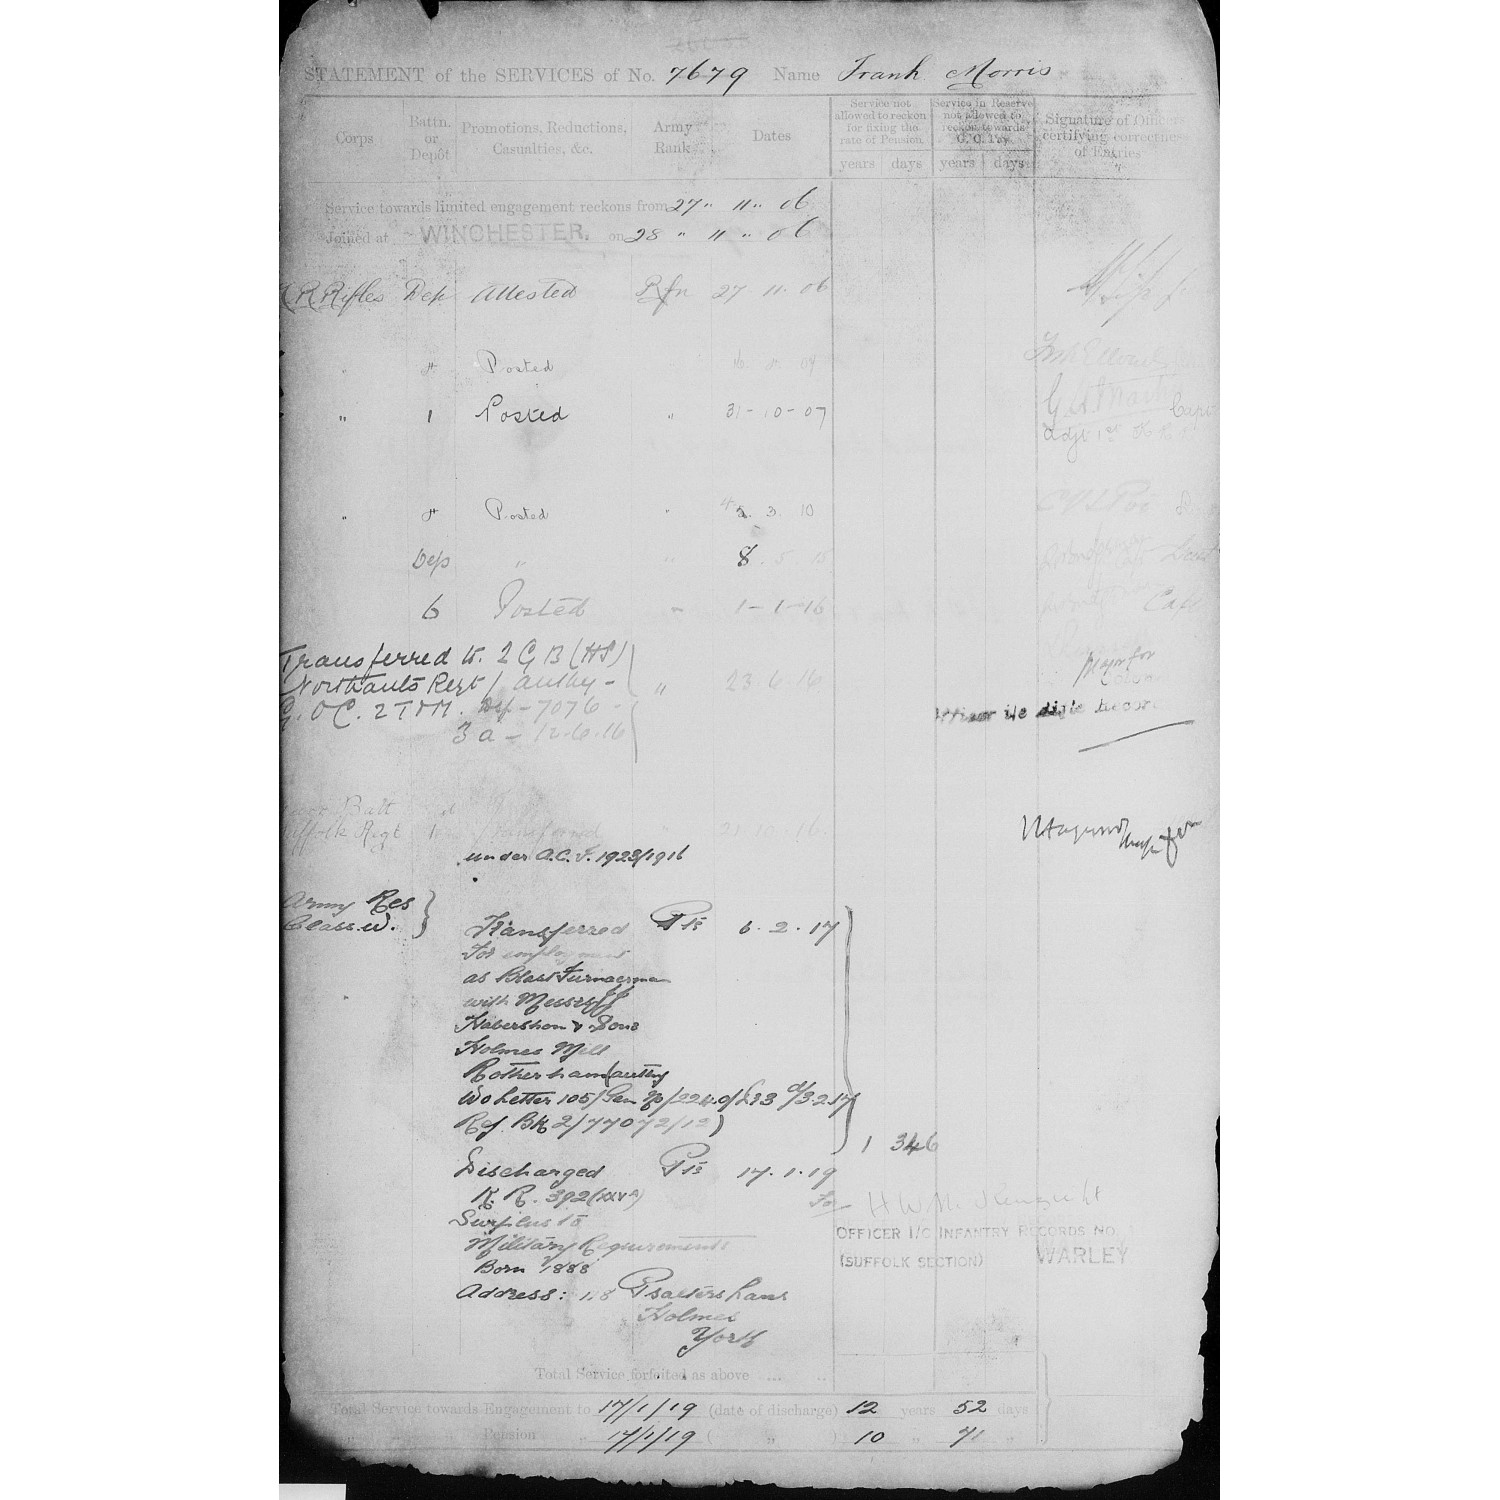 STATEMENT of the SERVICES of No. 7679 Name Frank Morris
Corps
Battn. or Depôt
Promotions, Reductions, Casualties, &c.
Army Rank
Dates
Service not allowed to reckon for fixing the rate of Pension
years days
Service in Reserve not allowed to reckon towards G. C. Pay
years days
Signature of Officer certifying correctness of Entries
Service towards limited engagement reckons from 27 " 11 " 06
Joined at WINCHESTER. on 28 " 11 " 06
K R Rifles Dep Attested Rfn 27 11 06
" 4 Posted
" 1 Posted " 31-10-07
Capt
Adjt 1st K R R
" 4 Posted " 3. 10
Dep " " 8. 5. 15
6 Posted " 1-1-16
Capt
Transferred to. 2 G B (HS)
Northants Regt / authy - " 23.6.16
G.O.C. 2 T D M. - 7076 -
3 a - 12.6.16
Major for
Colonel
Officer i/c Rifle Records
Batt
Suffolk Regt Transferred " 21.10.16
under A.C.I. 1923/1916
Army Res
Class. W. Transferred Pte 6. 2. 17
For employment
as Blast Furnaceman
with Messrs JJ
Habershon & Sons
Holmes Mill
Rotherham (authy
Wo Letter 105/Gen No/224.d/3.2.17
Ref. BK 2/77072/12)
1 346
Discharged Pte 17. 1. 19
K. R. 392 (XXVA) For
Surplus to
OFFICER I/C INFANTRY RECORDS NO.
Military Requirements
(SUFFOLK SECTION) WARLEY
Born 1888
Address: 118 Psalters Lane
Holmes
York
Total Service forfeited as above ... ..
Total Service towards Engagement to 17/1/19 (date of discharge) 12 years 52 days
" " " Pension " 17/1/19 ( " ) 10 " 71 "